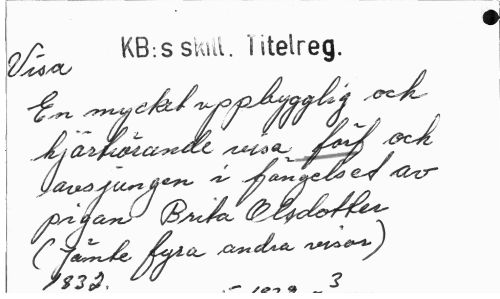 KB:s skill. Titelreg.
Visa
En mycket uppbygglig och
hjärtrörande visa förf och
avsjungen i fängelset av
pigan Brita Olsdotter
(jämte fyra andra visor)
1832.